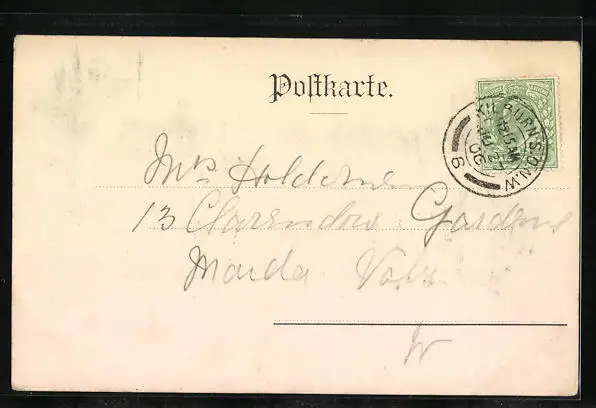 Postkarte.
KILBURN S.O. N.W
9.15 AM
06
6
Mrs Holderness
13 Clarendon Gardens
Maida Vale
W